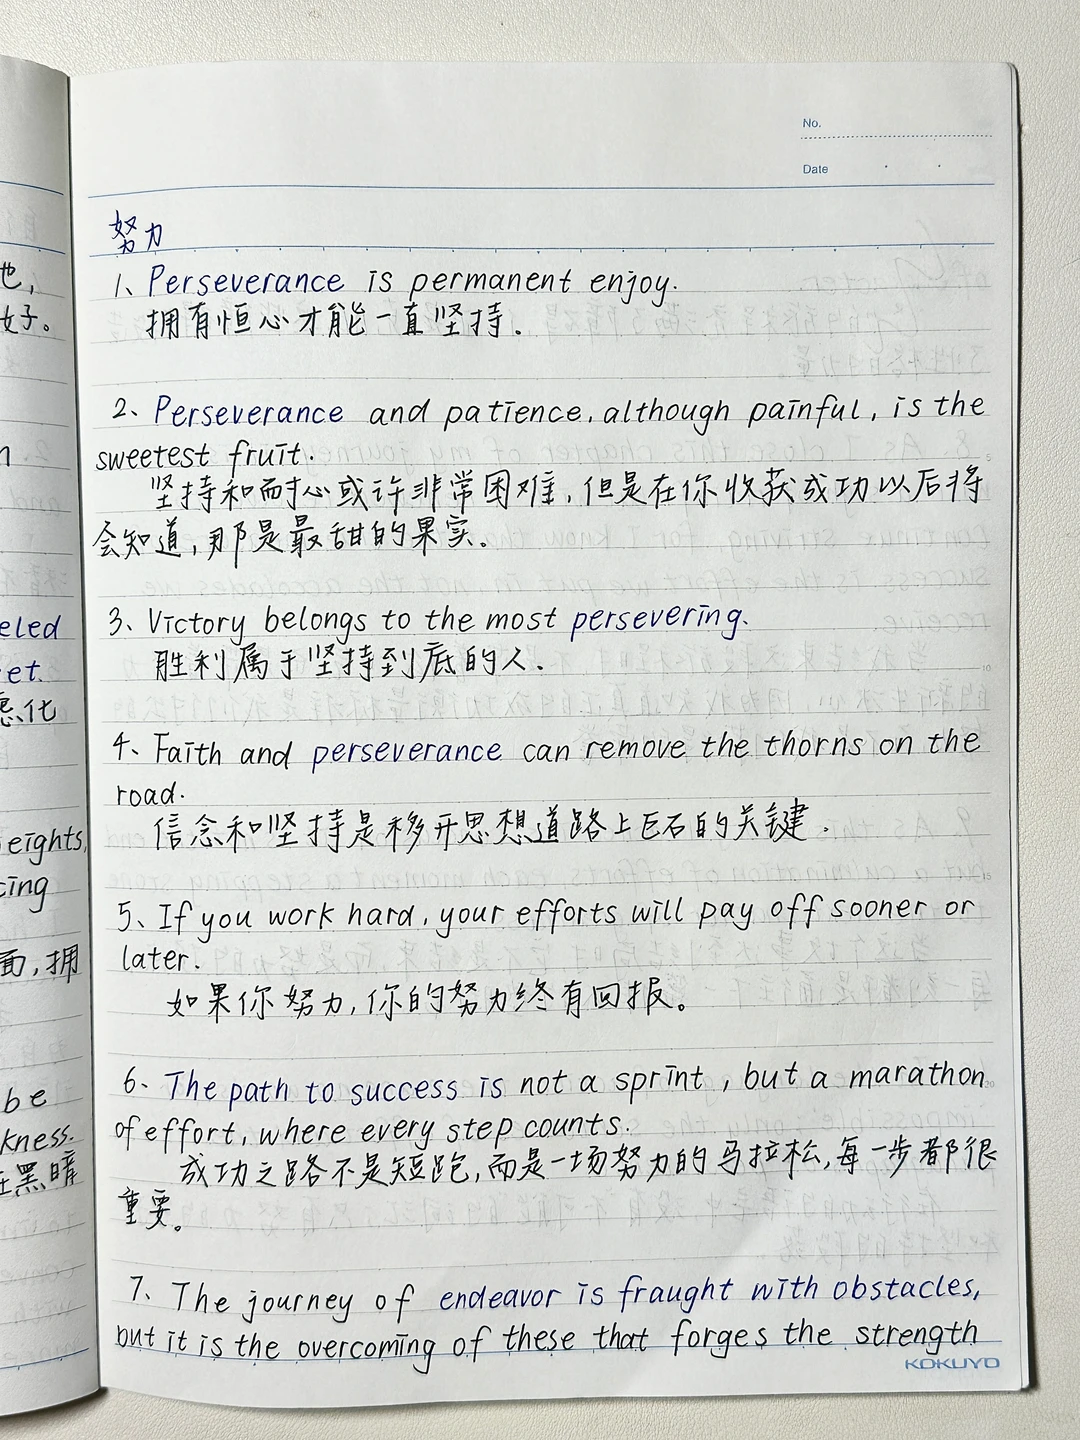 No.
Date
努力
1、Perseverance is permanent enjoy.
拥有恒心才能一直坚持.
2、Perseverance and patience, although painful, is the
sweetest fruit.
坚持和耐心或许非常困难,但是在你收获成功以后将
会知道,那是最甜的果实。
3、Victory belongs to the most persevering.
胜利属于坚持到底的人.
4、Faith and perseverance can remove the thorns on the
road.
信念和坚持是移开思想道路上巨石的关键.
5、If you work hard, your efforts will pay off sooner or
later.
如果你努力,你的努力终有回报。
6、The path to success is not a sprint, but a marathon
of effort, where every step counts.
成功之路不是短跑,而是一场努力的马拉松,每一步都很
重要。
7、The journey of endeavor is fraught with obstacles,
but it is the overcoming of these that forges the strength
KOKUYO
也,
好。
n
eled
et.
愿化
eights,
cing
面,拥
be
kness.
在黑暗